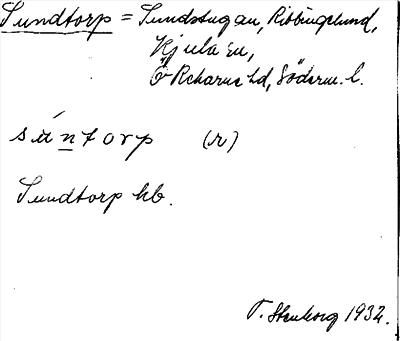 Sundtorp = Sundstugan, Ribbingelund,
Kjula sn,
Ö Rekarne hd, Söderm. l.
sún̲torp (r)
Sundtorp hb.
T. Stenborg 1932.